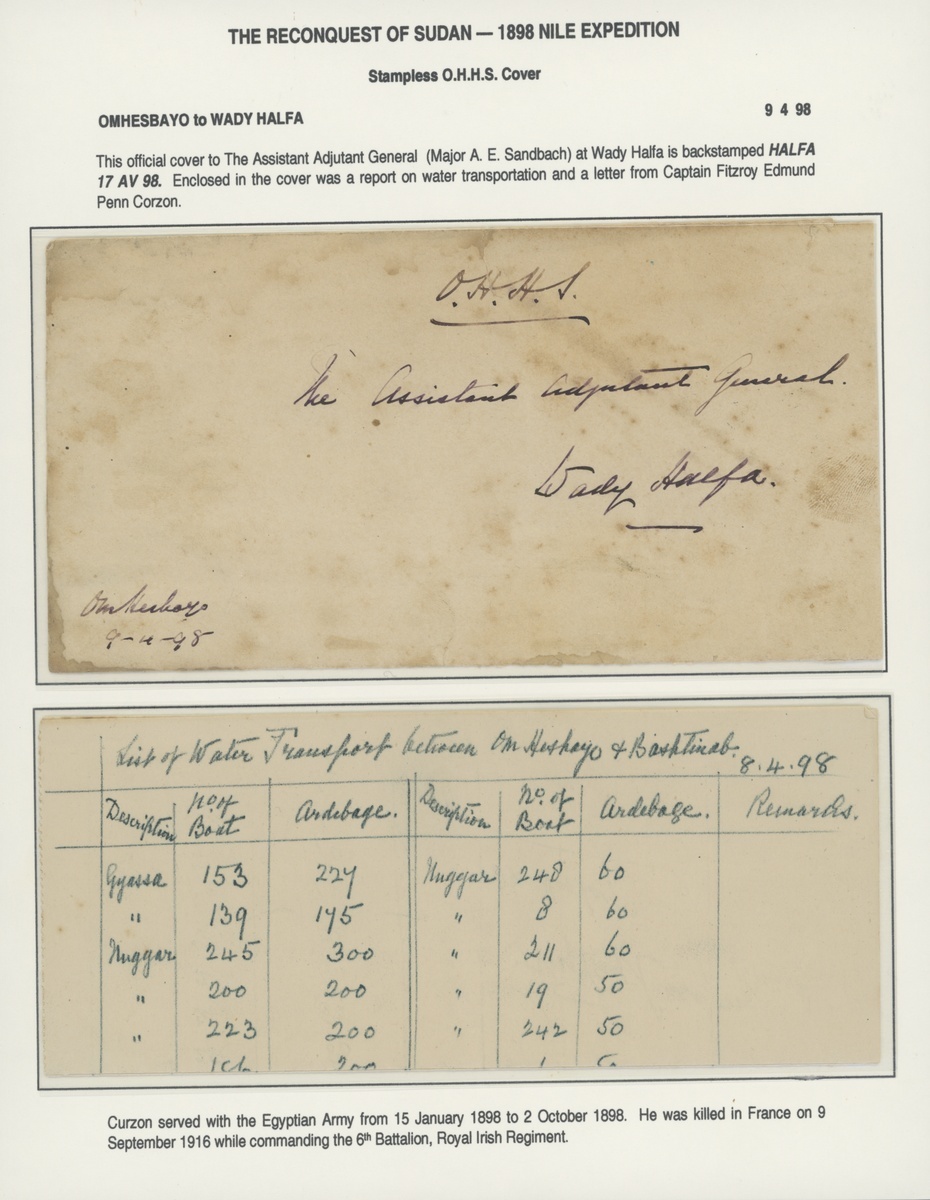 THE RECONQUEST OF SUDAN — 1898 NILE EXPEDITION
Stampless O.H.H.S. Cover
OMHESBAYO to WADY HALFA
9 4 98
This official cover to The Assistant Adjutant General (Major A. E. Sandbach) at Wady Halfa is backstamped HALFA
17 AV 98. Enclosed in the cover was a report on water transportation and a letter from Captain Fitzroy Edmund
Penn Corzon.
O.H.H.S.
The Assistant Adjutant General.
Wady Halfa.
Om Hesbayo
9-4-98
List of Water Transport between Om Hesbayo & Bashtinab.
8.4.98
Description No. of Boat Ardebage. Description No. of Boat Ardebage. Remarks.
Gyassa 153 227 Nuggar 248 60
" 139 175 " 8 60
Nuggar 245 300 " 211 60
" 200 200 " 19 50
" 223 200 " 242 50
Curzon served with the Egyptian Army from 15 January 1898 to 2 October 1898. He was killed in France on 9
September 1916 while commanding the 6th Battalion, Royal Irish Regiment.